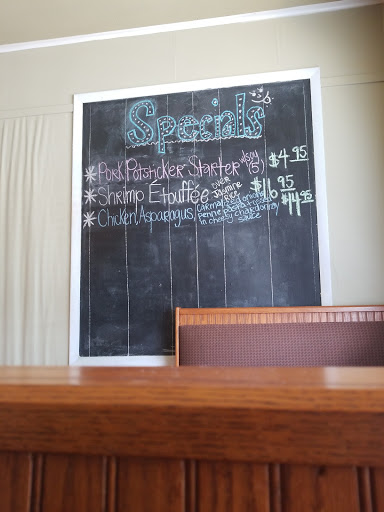 Specials
* Pork Potsticker Starter w/soy (5) $4.95
* Shrimp Étouffée over Jasmine Rice $16.95
* Chicken, Asparagus, $14.95
penne pasta
in cheesy chardonnay
sauce